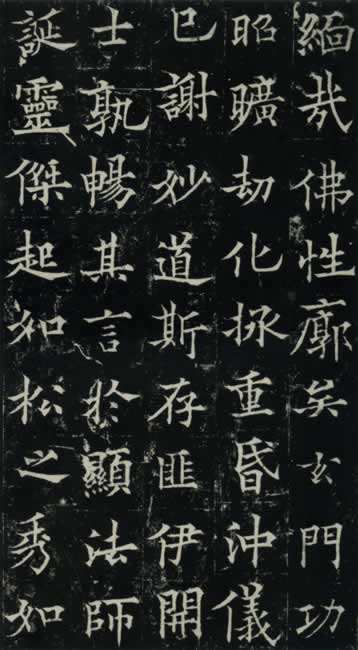 緬哉佛性廓矣玄門功
昭曠劫化拯重昏沖儀
已謝妙道斯存匪伊開
士孰暢其言於顯法師
誕靈傑起如松之秀如